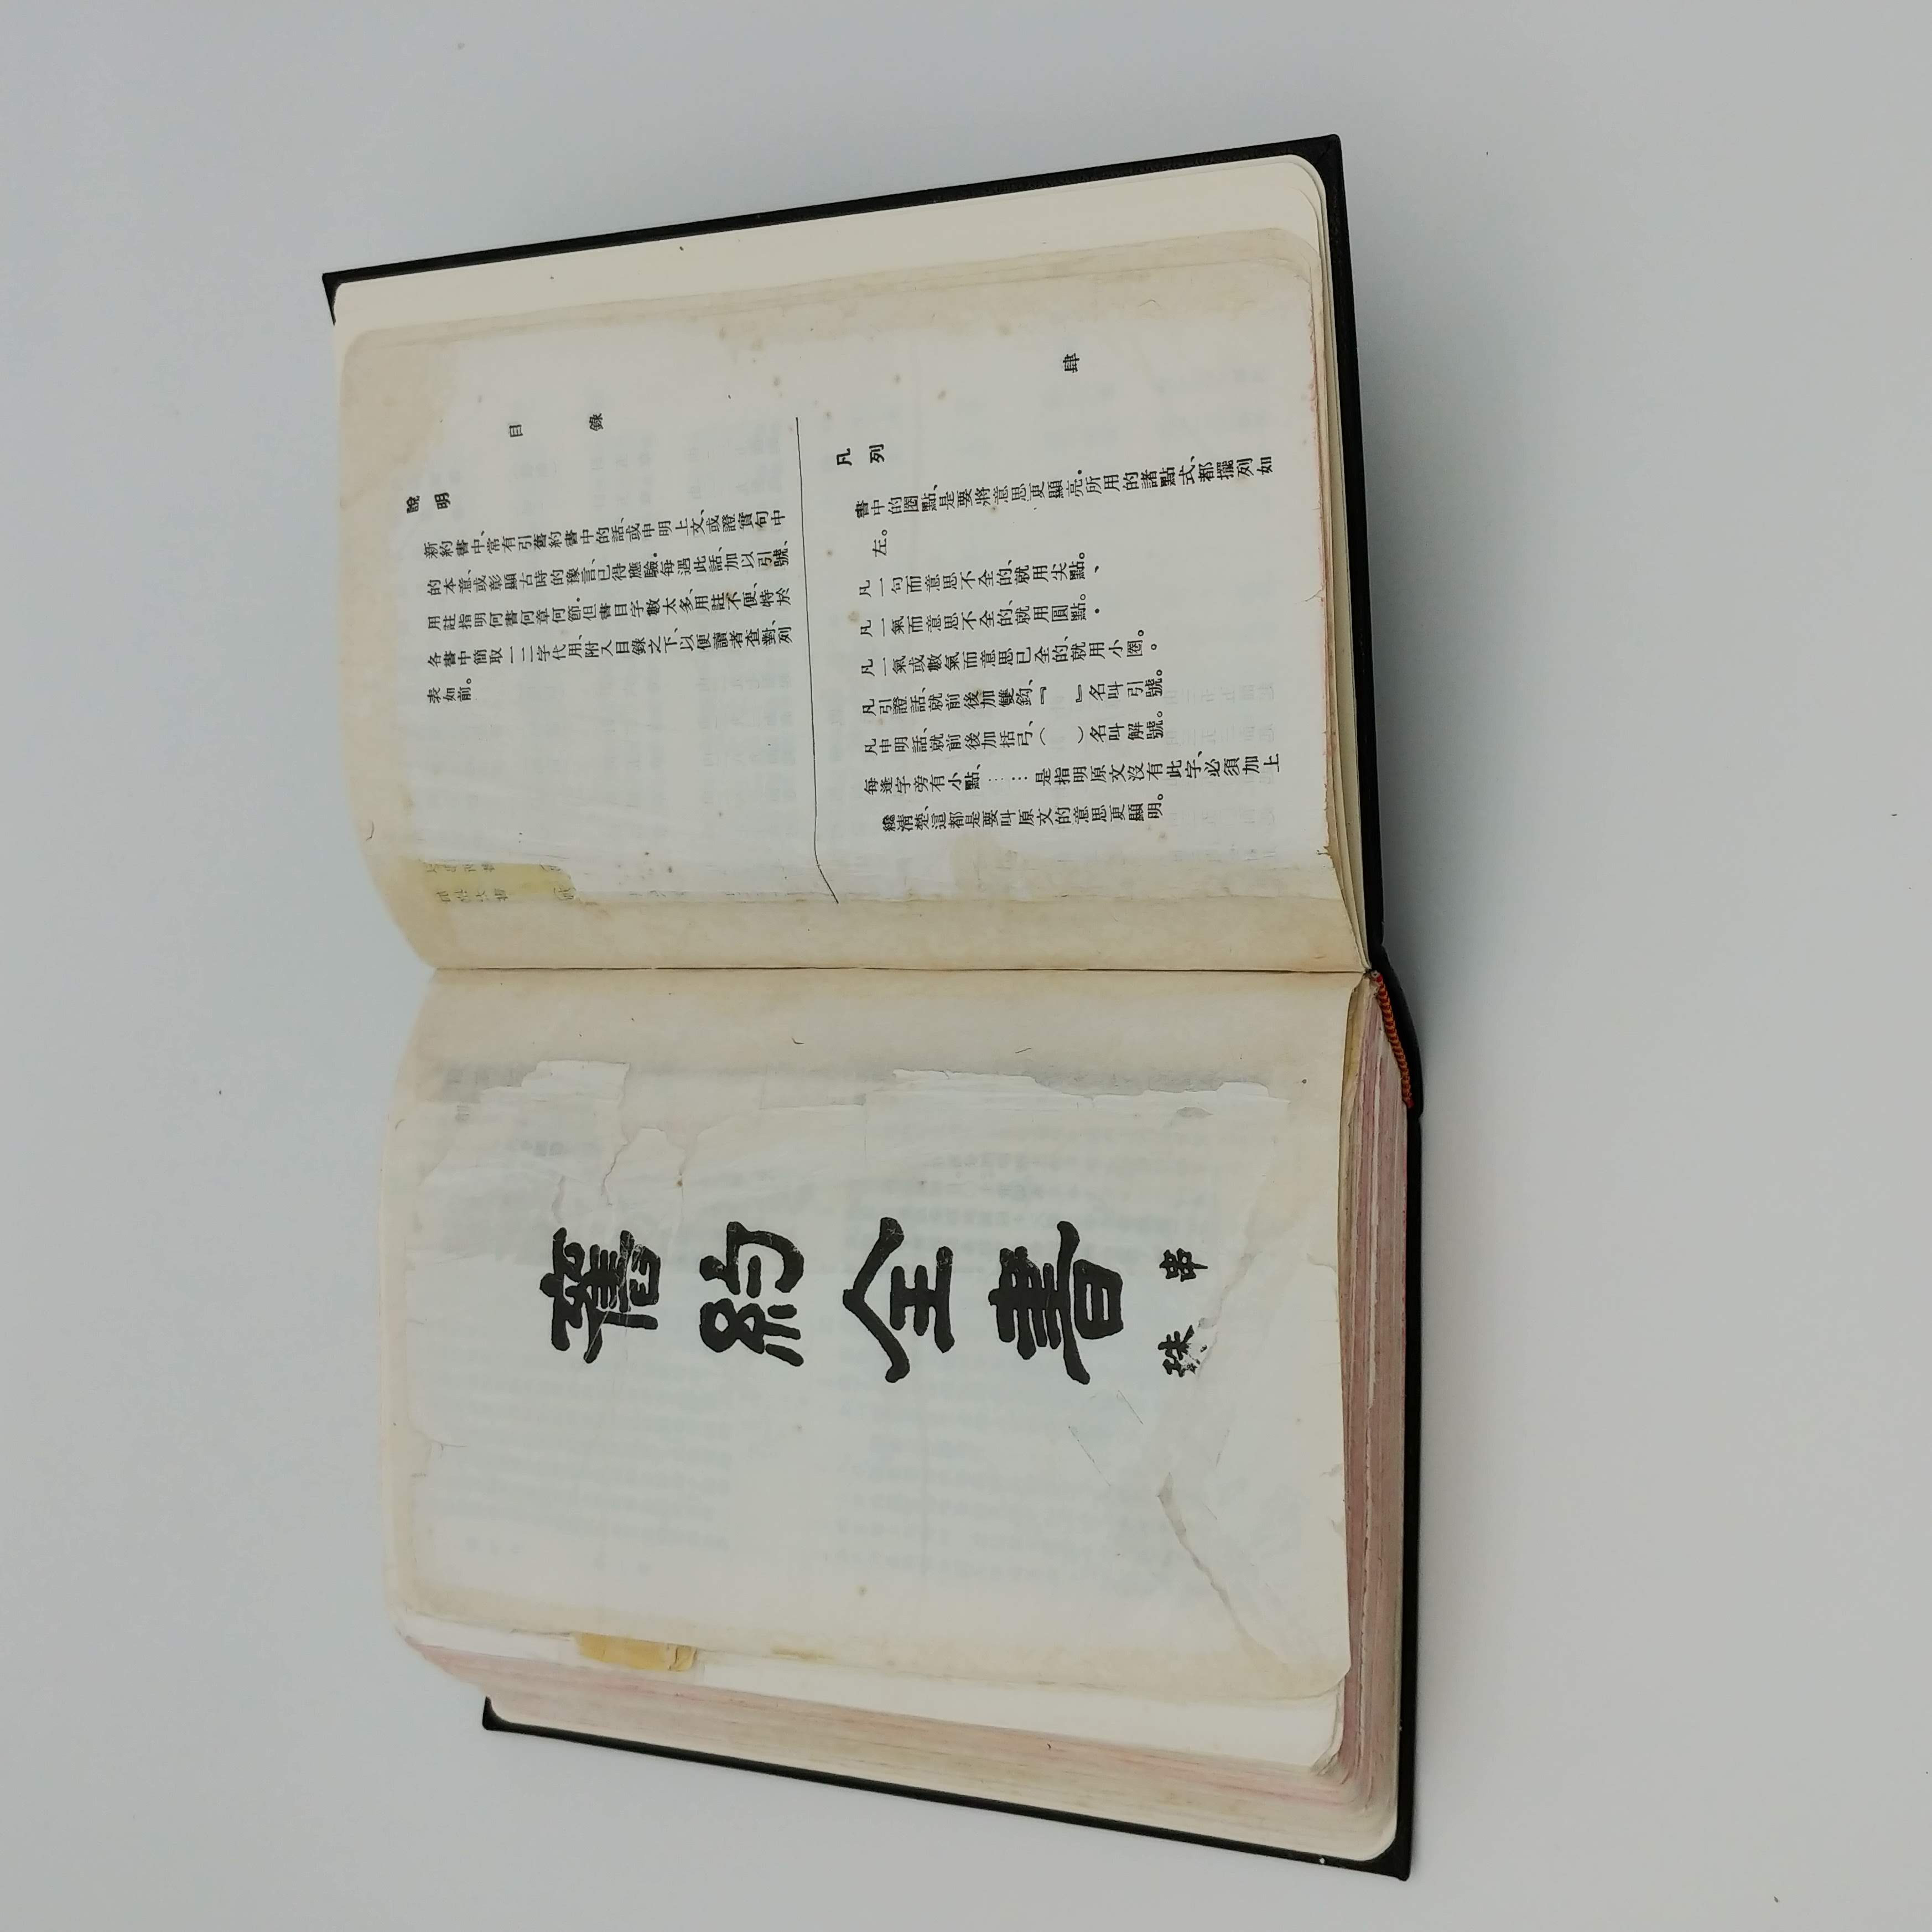 目錄
說明
新約書中、常有引舊約書中的話、或申明上文、或證實句中
的本意、或彰顯古時的豫言、已得應驗・每遇此話、加以引號、
用註指明何書何章何節・但書目字數太多、用註不便、特於
各書中簡取一二字代用、附入目錄之下、以便讀者查對、列
表如前。
肆
凡列
書中的圈點、是要將意思更顯亮・所用的諸點式、都擺列如
左。
凡一句而意思不全的、就用尖點。、
凡一氣而意思不全的、就用圓點。・
凡一氣或數氣而意思已全的、就用小圈。。
凡引證話、就前後加雙鈎、『　』名叫引號。
凡申明話、就前後加括弓、（　）名叫解號。
每逢字旁有小點、……是指明原文沒有此字、必須加上
纔清楚、這都是要叫原文的意思更顯明。
舊約全書
串珠